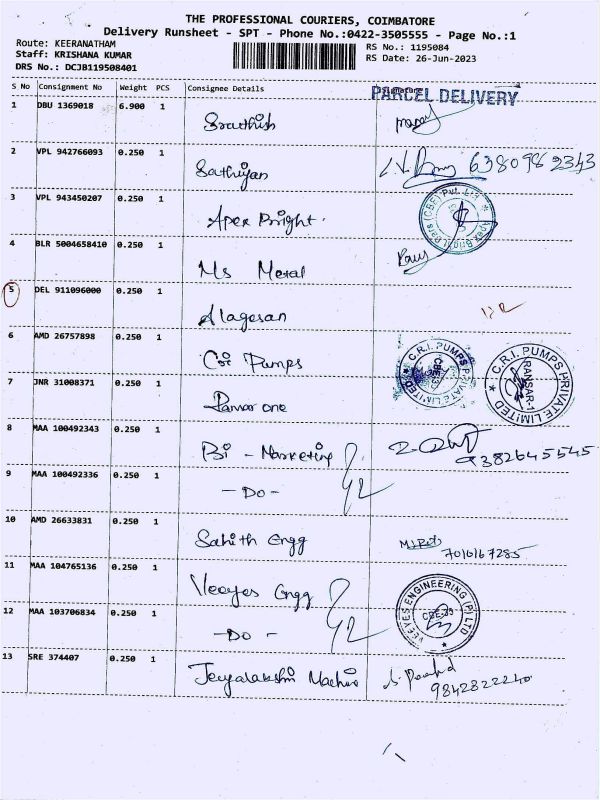 THE PROFESSIONAL COURIERS, COIMBATORE
Delivery Runsheet - SPT - Phone No.:0422-3505555 - Page No.:1
Route: KEERANATHAM
Staff: KRISHANA KUMAR
DRS No.: DCJB119508401
RS No.: 1195084
RS Date: 26-Jun-2023
S No Consignment No Weight PCS Consignee Details
PARCEL DELIVERY
1 DBU 1369018 6.900 1
2 VPL 942766093 0.250 1 Sathiyan 6380982343
3 VPL 943450207 0.250 1 Apex Bright.
4 BLR 5004658410 0.250 1 Ms Metal
5 DEL 911096000 0.250 1 Alagesan
6 AMD 26757898 0.250 1 Cri Pumps C.R.I. PUMPS PRIVATE LIMITED
7 JNR 31008371 0.250 1 one C.R.I. PUMPS PRIVATE LIMITED
8 MAA 100492343 0.250 1 Bi - Marketing 9382645545
9 MAA 100492336 0.250 1 - Do -
10 AMD 26633831 0.250 1 Sahith Engg 7016167285
11 MAA 104765136 0.250 1 Veeyes Engg VEEYES ENGINEERING (P) LTD
12 MAA 103706834 0.250 1 - Do -
13 SRE 374407 0.250 1 9842822240